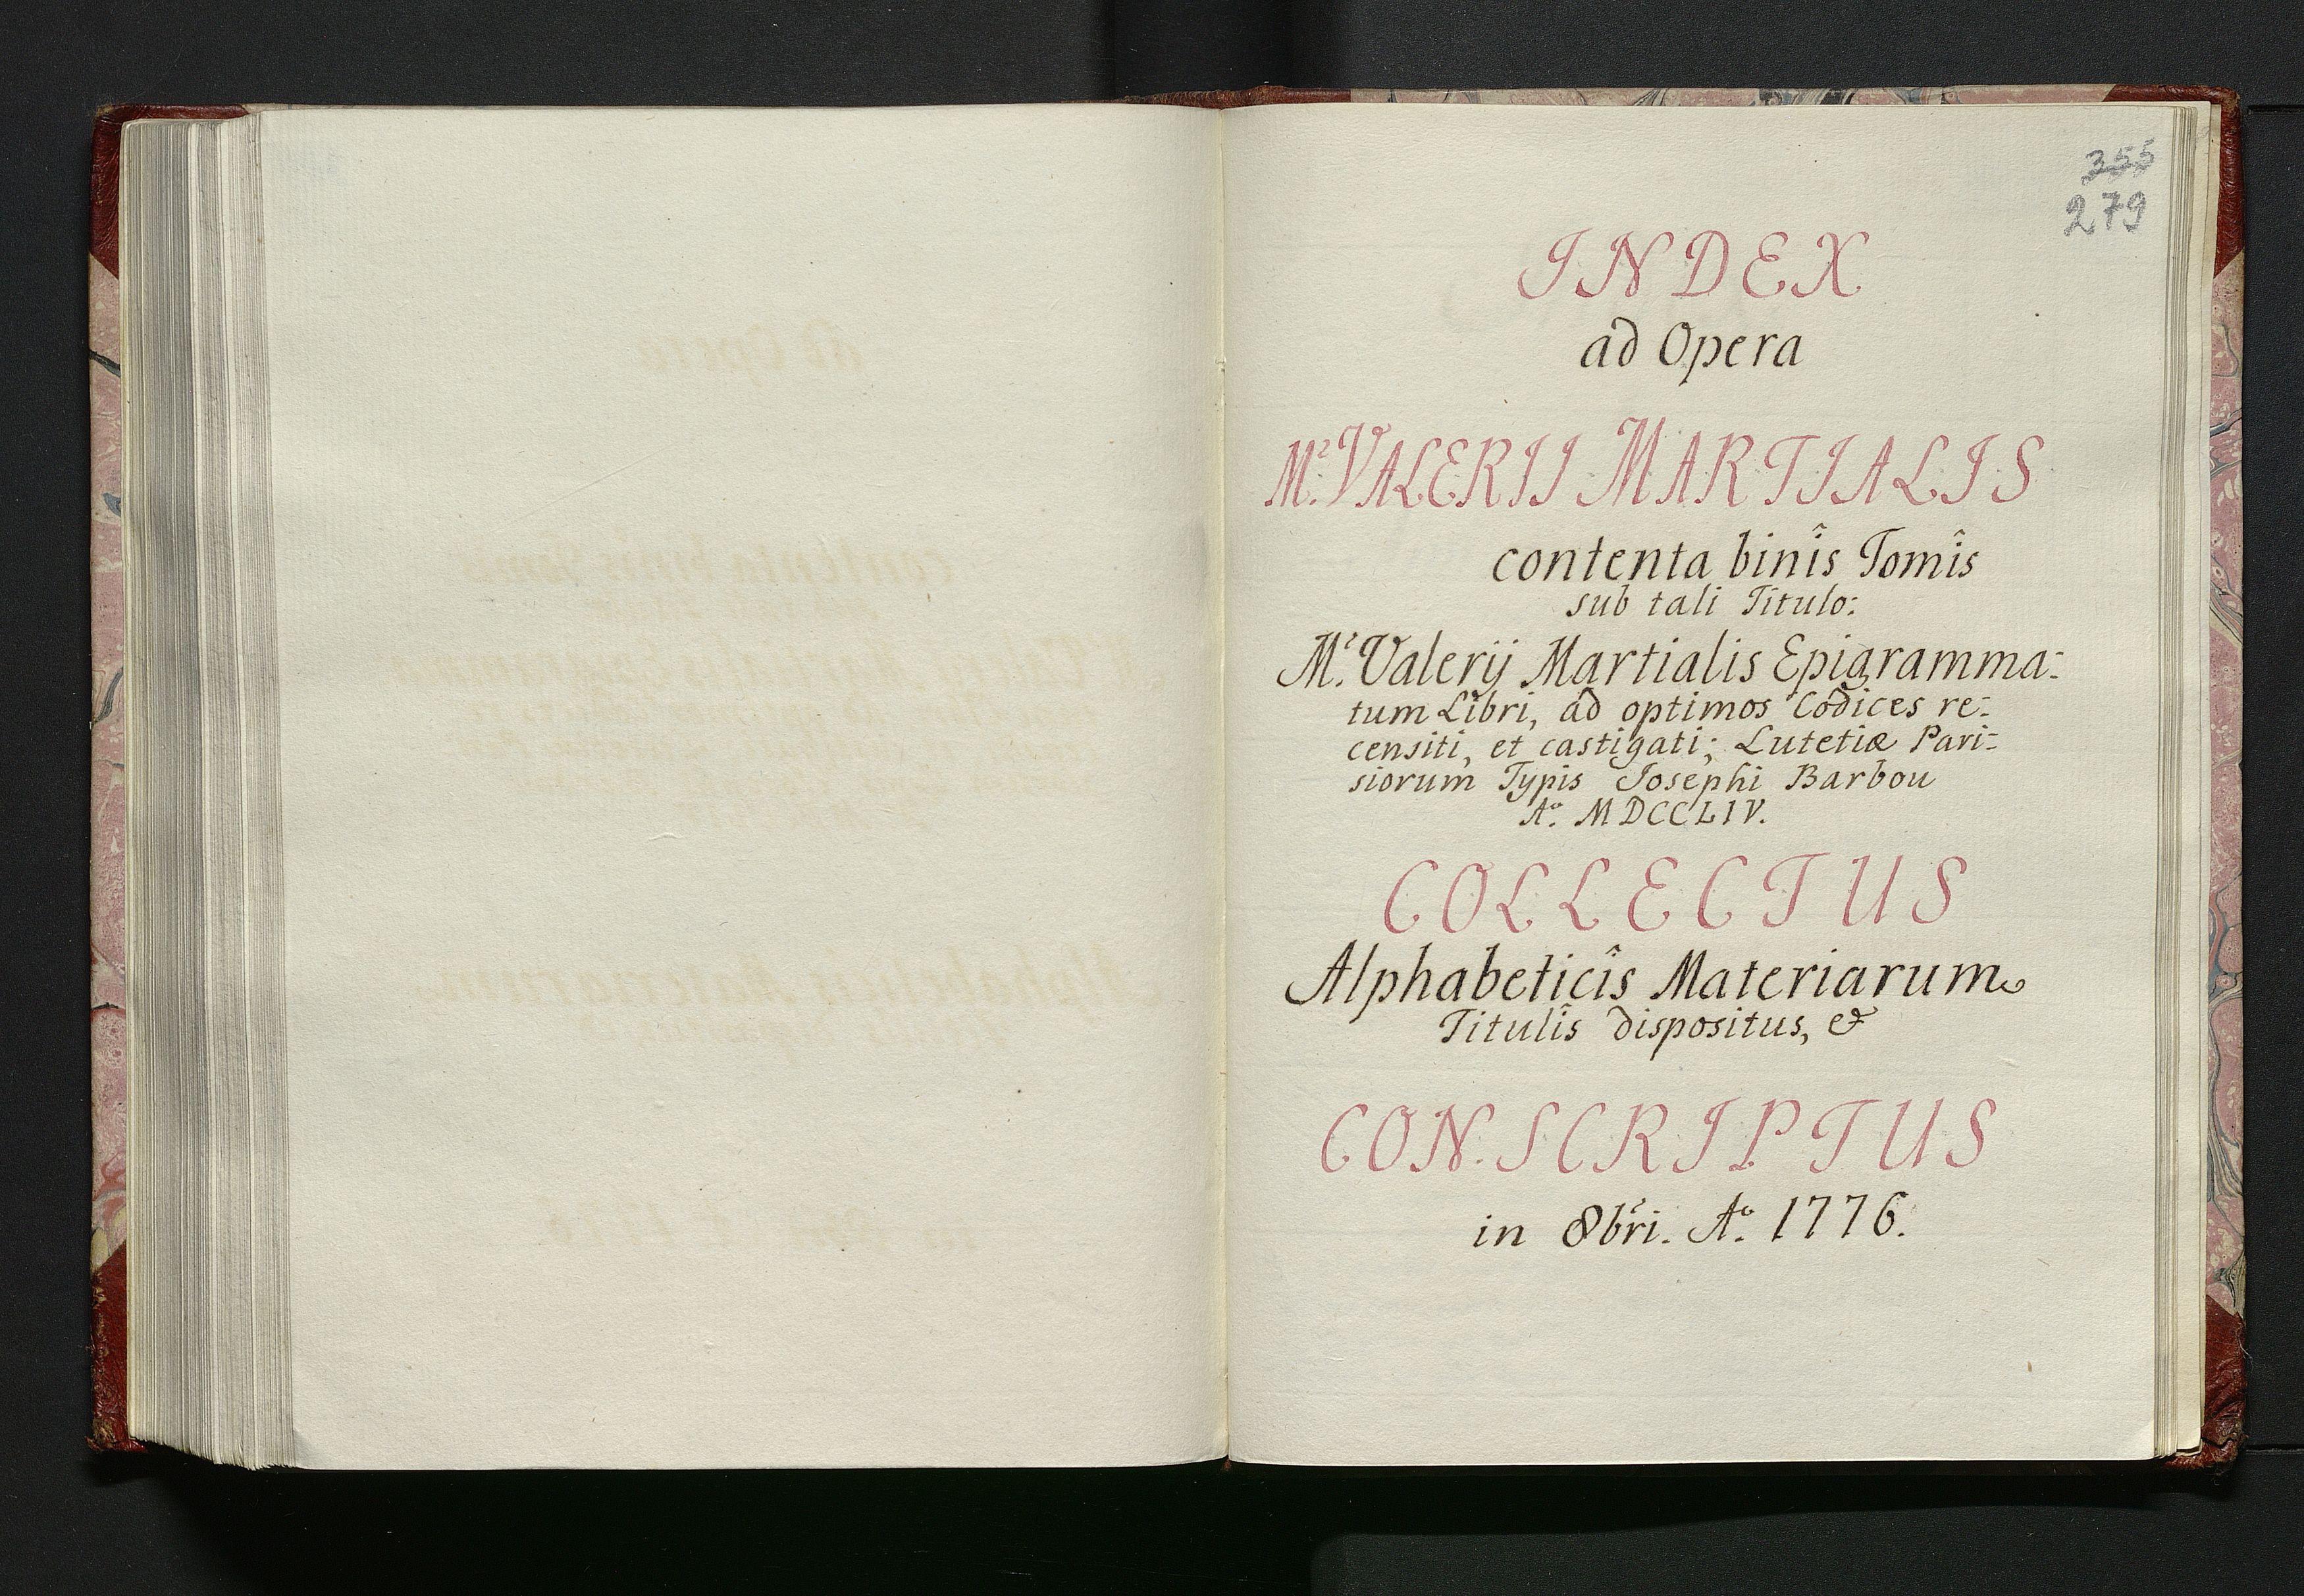 355
279
INDEX
ad Opera
M.ͬ VALERII MARTIALIS
contenta binîs Tomîs
sub tali Titulo:
M.ͬ Valerij Martialis Epigramma-
tum Libri, ad optimos Codices re-
censiti, et castigati; Lutetiæ Pari-
siorum Typis Josephi Barbou
Aº. MDCCLIV.
COLLECTUS
Alphabeticîs Materiarum
Titulîs dispositus, &
CONSCRIPTUS
in 8bri. Aº. 1776.